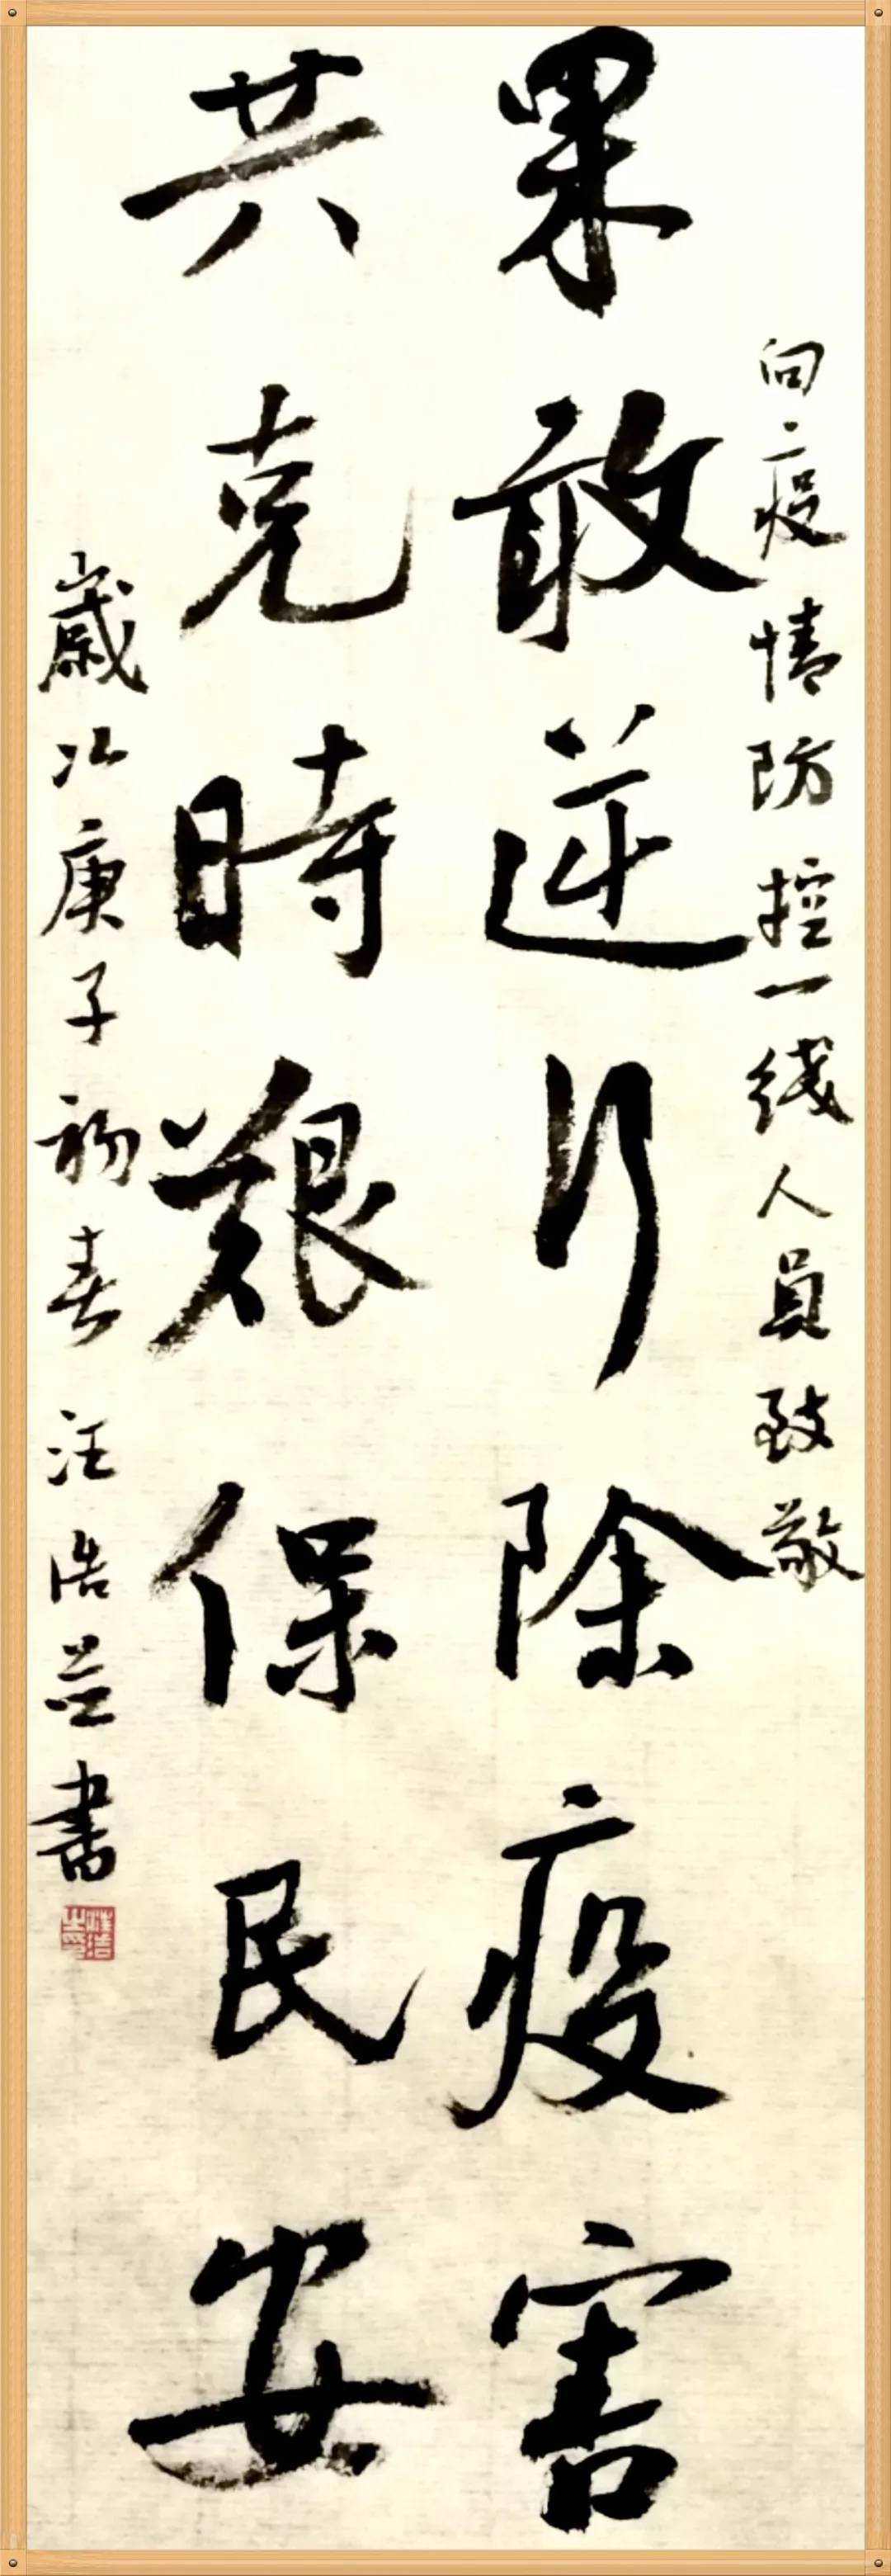 向疫情防控一线人员致敬
果敢逆行除疫害
共克時艱保民安
歲次庚子初春 汪浩並書
汪浩之印